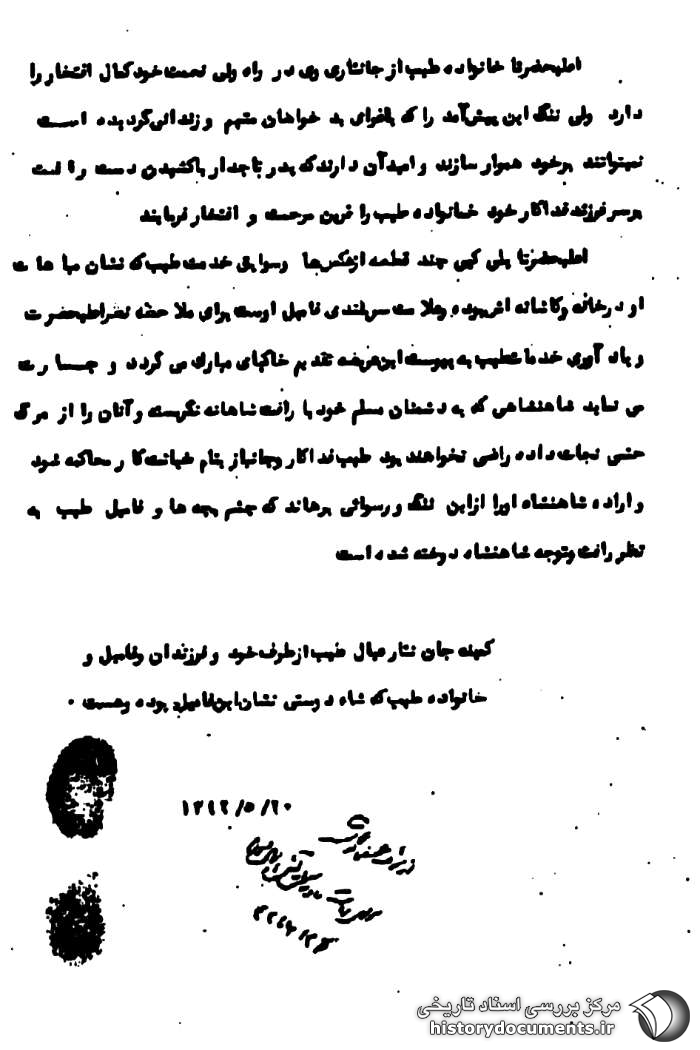 اعلیحضرتا خانواده طیب از جانثاری وی در راه ولی نعمت خود کمال افتخار را
دارد ولی ننگ این پیش‌آمد را که باغوای بد خواهان متهم و زندانی گردیده است
نمیتوانند برخود هموار سازند و امید آن دارند که پدر تاجدار با کشیدن دست رافت
بر سر فرزند فداکار خود خانواده طیب را قرین مرحمت و افتخار فرمایند
اعلیحضرتا پلی کپی چند قطعه از عکس‌ها وسوابق خدمت طیب که نشان مباهات
او در خانه و کاشانه اش بوده و علامت سربلندی فامیل اوست برای ملاحظه نظر اعلیحضرت
و یاد آوری خدمات طیب به پیوست این عریضه تقدیم خاکپای مبارک می گردد و جسارت
می نماید شاهنشاهی که به دشمنان مسلم خود با رافت شاهانه نگریسته و آنان را از مرگ
حتمی نجات داده راضی نخواهند بود طیب فداکار وجانباز بنام خیانت کار محاکمه شود
و اراده شاهنشاه اورا از این ننگ و رسوائی برهاند که چشم بچه ها و فامیل طیب به
نظر رافت وتوجه شاهنشاه دوخته شده است
کمینه جان نثار عیال طیب از طرف خود و فرزندان وفامیل و
خانواده طیب که شاه دوستی نشان این فامیل بوده وهست .
۱۳۴۲/۵/۲۰
مرکز بررسی اسناد تاریخی
historydocuments.ir